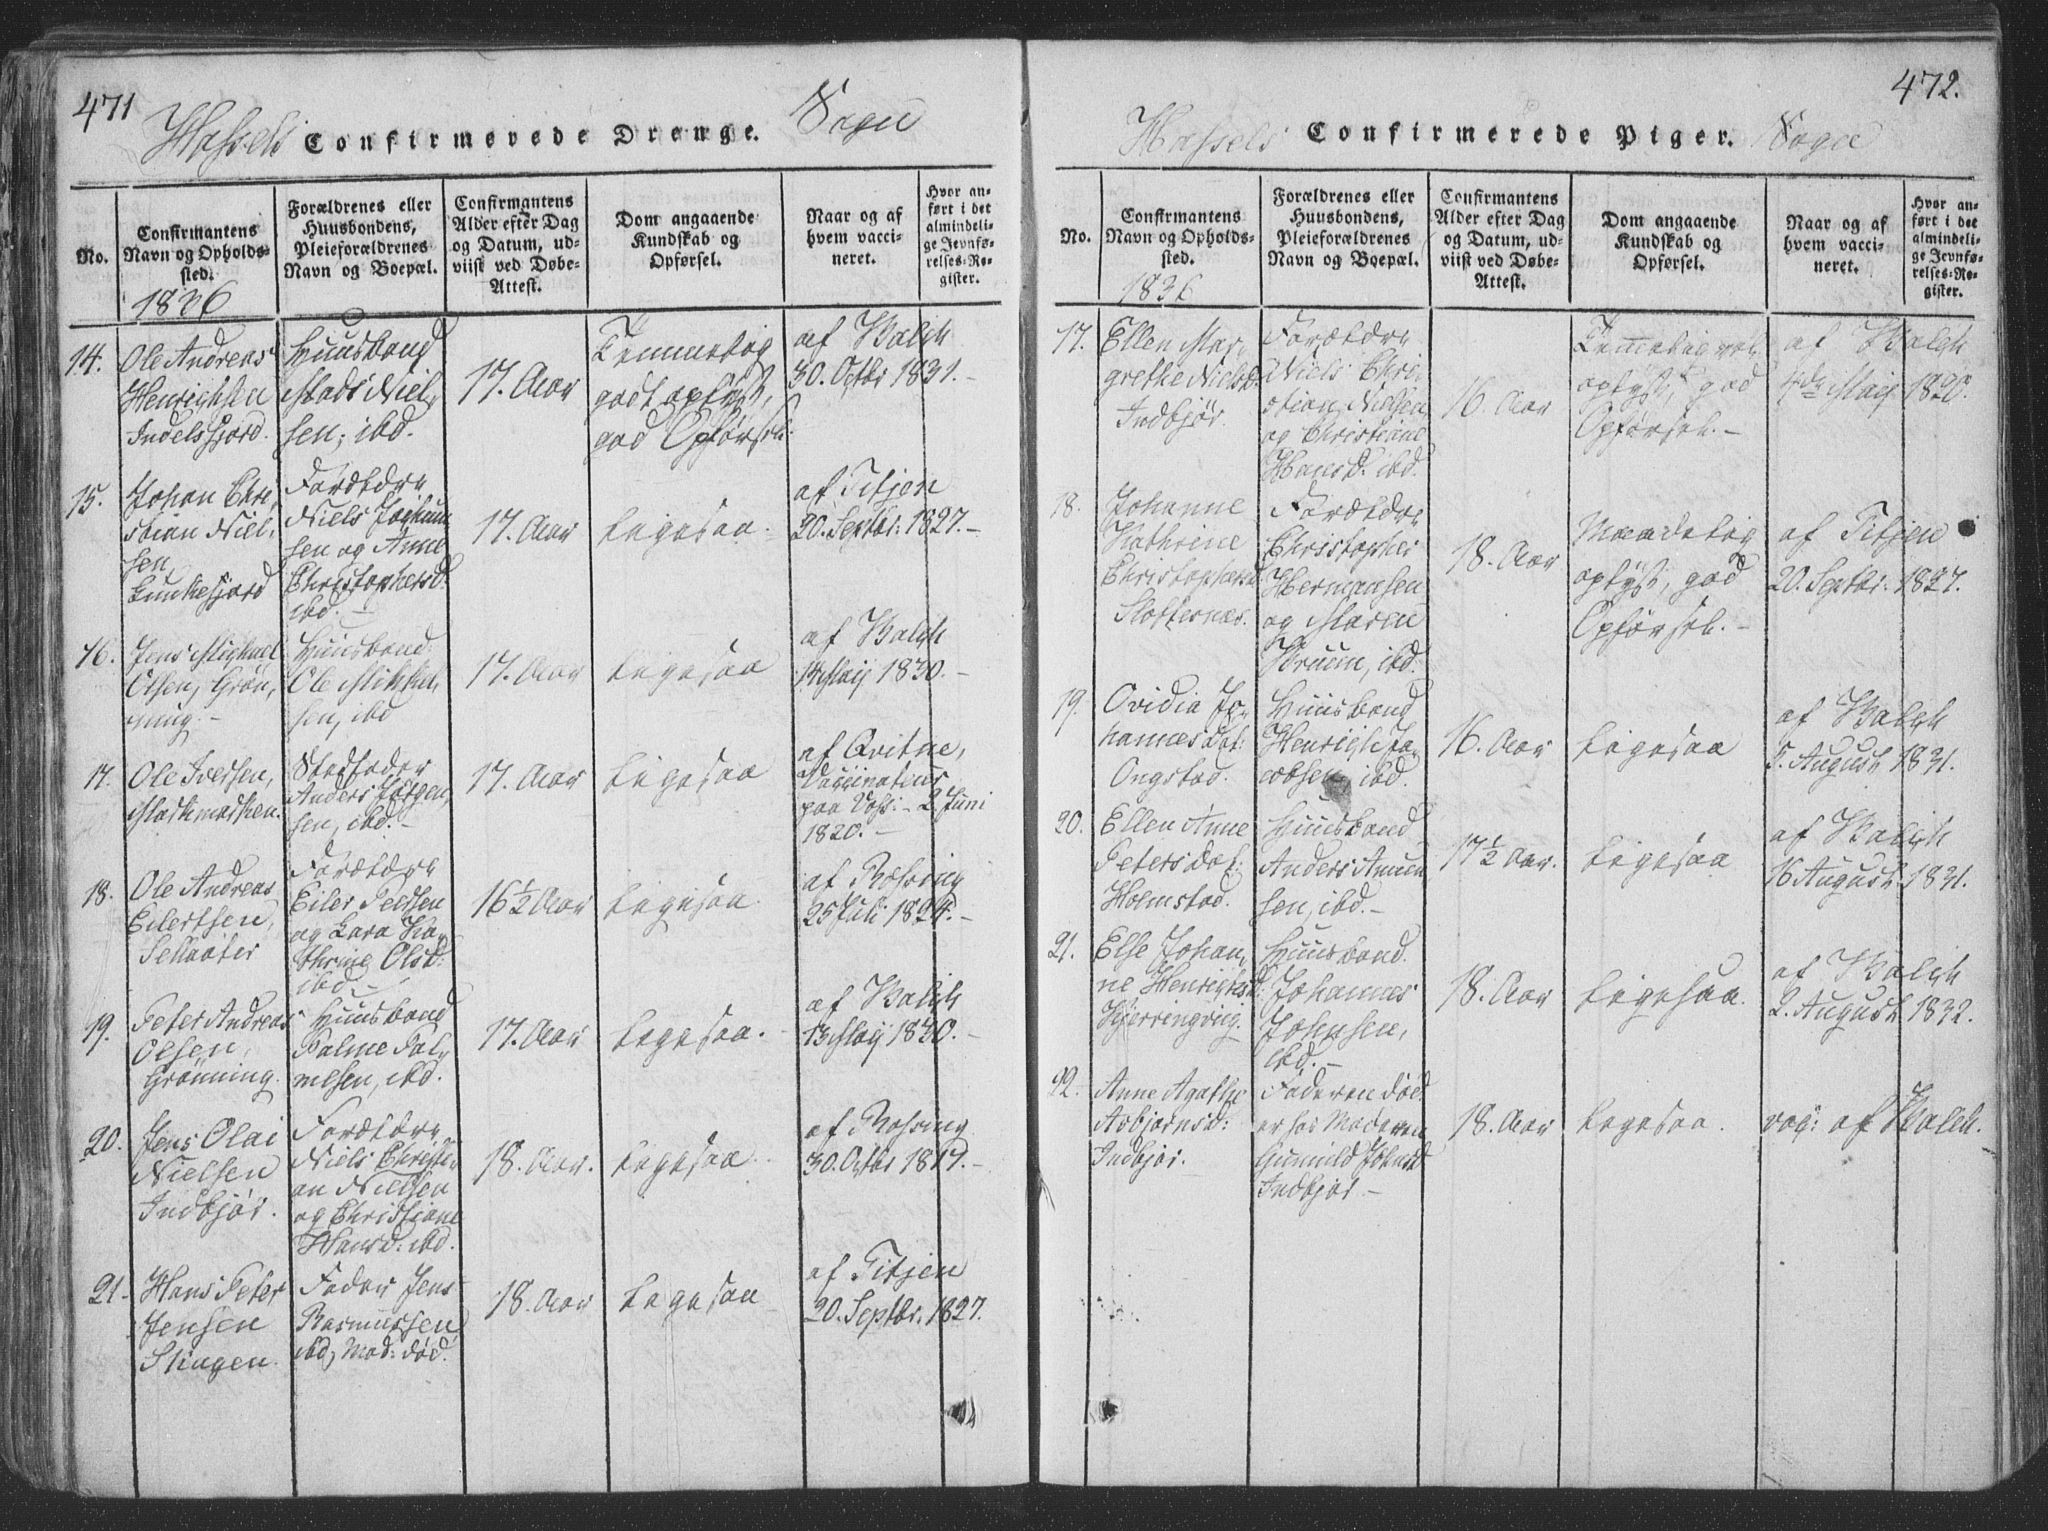 471
Hassels Confirmerede Drenge. Sogn
No.
Confirmantens Navn og Opholds-sted.
Forældrenes eller Huusbondens, Pleieforældrenes Navn og Boepæl.
Confirmantens Alder efter Dag og Datum, ud-viist ved Døbe-Attest.
Dom angaaende Kundskab og Opførsel.
Naar og af hvem vacci-neret.
Hvor an-ført i det almindeli-ge Jevnfø-relses-Re-gister.
1836
14.
Ole Andreas
Henrichsen
Indelsfjord.
Huusbond
Mads Niel-
sen, ibd.
17. Aar
Temmelig
godt oplyst,
god Opførsel.
af Balch
30. Octbr 1831.-
15.
Johan Chri-
stian Niel-
sen,
Lunkefjord
Forældre
Niels Jochum
sen og Anne
Christophersd.
ibd.-
17. Aar
ligesaa.
af Titjen
20. Septbr: 1827.-
16.
Jens Michael
Olsen, Grøn-
ning.-
Huusbond:
Ole Mikkel-
sen, ibd
17. Aar
ligesaa
af Balch
14 Maij 1830.-
17.
Ole Iversen,
Markmarken.
Stedfader
Anders Jørgen-
sen, ibd.-
17. Aar
ligesaa
af Qvitne,
Vaccinateur
paa Voss:- 2 Juni
1820.-
18.
Ole Andreas
Eilertsen,
Forældre
Eiler Peersen
og Lara Ka-
thrine Olsd:
ibd.-
16½ Aar
ligesaa.
af Rossing
25 Juli 1824.-
19.
Peter Andreas
Olsen,
Grønning.
Huusbond
Palme Pal-
mesen, ibd.
17. Aar
ligesaa.
af Balch
13 Maij 1830.-
20.
Jens Olai
Nielsen
Indbjør.
Forældre
Niels Christi-
an Nielsen
og Christiane
Hansd: ibd.
18. Aar.
ligesaa
af Rossing
30. Octbr 1819.-
21.
Hans Peter
Jensen
Skagen.
Fader Jens
Rasmussen
ibd, Mod: død.
18. Aar
ligesaa
af Titjen
20. Septbr. 1827.
472.
Hassels Confirmerede Piger. Sogn
No.
Confirmantens Navn og Opholds-sted.
Forældrenes eller Huusbondens, Pleieforældrenes Navn og Boepæl.
Confirmantens Alder efter Dag og Datum, ud-viist ved Døbe-Attest.
Dom angaaende Kundskab og Opførsel.
Naar og af hvem vacci-neret.
Hvor an-ført i det almindeli-ge Jevnfø-relses-Re-gister.
1836
17.
Ellen Mar-
grethe Nielsd.
Indbjør.
Forældre
Niels Chri-
stian Nielsen
og Christiane
Hansd: ibd.
16. Aar
Temmelig vel
oplyst, god
Opførsel.-
af Balch
4de Maij 1820.
18.
Johanne
Kathrine
Christophersd.
Slotternæs.
Forældre
Christopher
Hermansen
og Maren
Bruun, ibd.
18. Aar
Maadelig
oplyst, god
Opførsel.-
af Titjen
20. Septbr: 1827.
19.
Ovidia Jo-
hannesdat:
Ongstad.
Huusbond
Henrich Ja-
cobsen, ibd.
16. Aar
ligesaa
af Balch
5. August 1831.
20.
Ellen Anne
Petersdat:
Holmstad.
Huusbond
Anders Amun
sen, ibd.-
17½ Aar.
ligesaa
af Balch
16 August 1831.
21.
Else Johan-
ne Henrichsd:
Kjerringvig.
Huusbond.
Johannes
Johnsen,
ibd.-
18. Aar
ligesaa.
af Balch
2. August 1832.
22.
Anne Agathe
Asbjørnsd:
Indbjør.
Faderen død
er hos Moderen
Gunnild Johnsd
Indbjør-
18. Aar
ligesaa.
vac: af Balch.